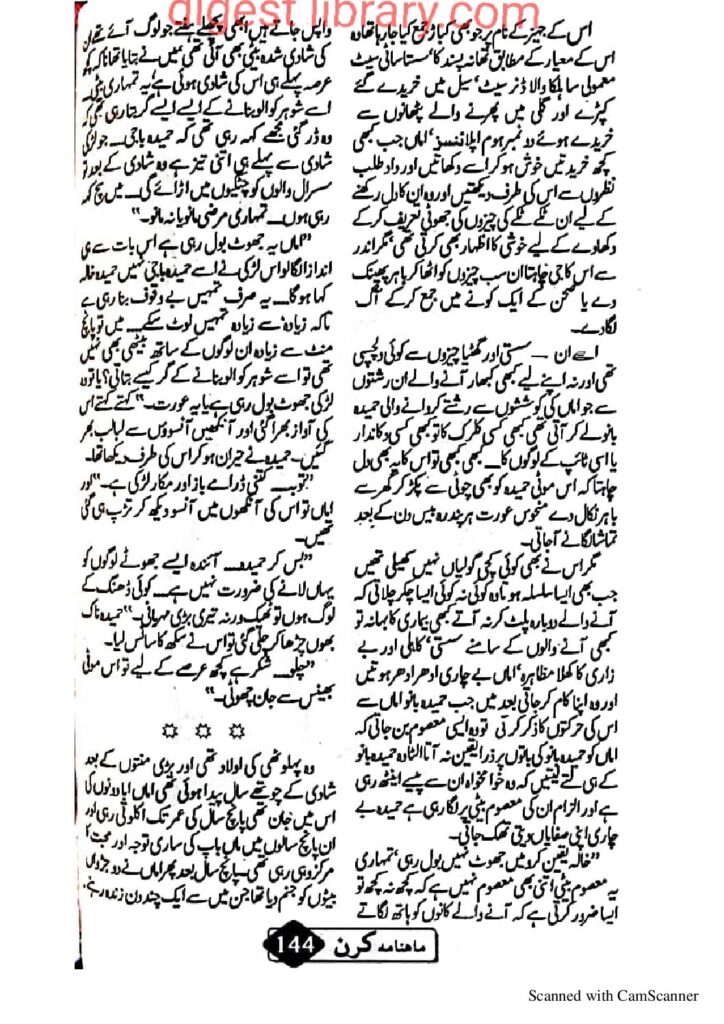 digest library.com
اس کے جہیز کے نام پر جو بھی کباڑ جمع کیا جا رہا تھا وہ
اس کے معیار کے مطابق تھا نہ پسند کا‘ سستا سا ٹی سیٹ
معمولی سا ہلکا والا ڈنر سیٹ‘ سیل میں خریدے گئے
کپڑے اور گلی میں پھرنے والے پٹھانوں سے
خریدے ہوئے دو نمبر ہوم اپلائنسز‘ اماں جب کبھی
کچھ خریدتیں خوش ہو کر اسے دکھاتیں اور داد طلب
نظروں سے اس کی طرف دیکھتیں اور وہ ان کا دل رکھنے
کے لیے ان ٹکے ٹکے کی چیزوں کی جھوٹی تعریف کر کے
دکھاوے کے لیے خوشی کا اظہار بھی کرتی تھی‘ مگر اندر
سے اس کا جی چاہتا ان سب چیزوں کو اٹھا کر باہر پھینک
دے یا صحن کے ایک کونے میں جمع کر کے آگ
لگا دے۔
اسے ان — سستی اور گھٹیا چیزوں سے کوئی دلچسپی
تھی اور نہ اپنے لیے کبھی کبھار آنے والے ان رشتوں
سے جو اماں کی کوششوں سے رشتے کروانے والی حمیدہ
بانو لے کر آتی تھی کبھی کسی کلرک کا تو کبھی کسی دکاندار
یا اسی ٹائپ کے لوگوں کا۔ کبھی کبھی تو اس کا یہ بھی دل
چاہتا کہ اس موٹی حمیدہ کو بھی چوٹی سے پکڑ کر گھر سے
باہر نکال دے منحوس عورت ہر پندرہ بیس دن کے بعد
تماشا لگانے آ جاتی۔
مگر اس نے بھی کوئی کچی گولیاں نہیں کھیلی تھیں
جب بھی ایسا سلسلہ ہوتا وہ کوئی نہ کوئی ایسا چکر چلاتی کہ
آنے والے دوبارہ پلٹ کر نہ آتے کبھی بیماری کا بہانہ تو
کبھی آنے والوں کے سامنے سستی‘ کاہلی اور بے
زاری کا کھلا مظاہرہ‘ اماں بے چاری ادھر ادھر ہوتیں
اور وہ اپنا کام کر جاتی بعد میں جب حمیدہ بانو اماں سے
اس کی حرکتوں کا ذکر کرتی تو وہ ایسی معصوم بن جاتی کہ
اماں کو حمیدہ بانو کی باتوں پر ذرا یقین نہ آتا الٹا وہ حمیدہ بانو
کے ہی لتے لیتیں کہ وہ خوامخواہ ان سے پیسے اینٹھ رہی
ہے اور الزام ان کی معصوم بیٹی پر لگا رہی ہے حمیدہ بے
چاری اپنی صفایاں دیتی تھک جاتی۔
”خالہ یقین کرو میں جھوٹ نہیں بول رہی‘ تمہاری
یہ معصوم بیٹی اتنی بھی معصوم نہیں ہے کہ کچھ نہ کچھ تو
ایسا ضرور کرتی ہے کہ آنے والے کانوں کو ہاتھ لگاتے
واپس جاتے ہیں ابھی پچھلے ہفتے جو لوگ آئے تھے ان
کی شادی شدہ بیٹی بھی آئی تھی میں نے بتایا تھا نا کہ کچھ
عرصہ پہلے ہی اس کی شادی ہوئی ہے‘ یہ تمہاری بیٹی
اسے شوہر کو الو بنانے کے ایسے ایسے گر بتا رہی تھی کہ
وہ ڈر گئی مجھے کہہ رہی تھی کہ حمیدہ باجی۔ جو لڑکی
شادی سے پہلے ہی اتنی تیز ہے وہ شادی کے بعد تو
سسرال والوں کو چٹکیوں میں اڑائے گی۔ میں سچ کہہ
رہی ہوں۔ تمہاری مرضی مانو یا نہ مانو۔“
”اماں یہ جھوٹ بول رہی ہے اس بات سے ہی
اندازا لگا لو اس لڑکی نے اسے حمیدہ باجی نہیں حمیدہ خالہ
کہا ہو گا۔ یہ صرف تمہیں بے وقوف بنا رہی ہے
تاکہ زیادہ سے زیادہ تمہیں لوٹ سکے۔ میں تو پانچ
منٹ سے زیادہ ان لوگوں کے ساتھ بیٹھی بھی نہیں
تھی تو اسے شوہر کو الو بنانے کے گر کیسے بتاتی؟ یا تو وہ
لڑکی جھوٹ بول رہی ہے یا یہ عورت۔“ کہتے کہتے اس
کی آواز بھرا گئی اور آنکھیں آنسوؤں سے لبالب بھر
گئیں۔ حمیدہ نے حیران ہو کر اس کی طرف دیکھا تھا۔
”توبہ۔ کتنی ڈرامے باز اور مکار لڑکی ہے۔“ اور
اماں تو اس کی آنکھوں میں آنسو دیکھ کر تڑپ ہی گئی
تھیں۔
”بس کر حمیدہ۔ آئندہ ایسے جھوٹے لوگوں کو
یہاں لانے کی ضرورت نہیں ہے۔ کوئی ڈھنگ کے
لوگ ہوں تو ٹھیک ورنہ تیری بڑی مہربانی۔“ حمیدہ ناک
بھوں چڑھا کر چلی گئی تو اس نے سکھ کا سانس لیا۔
”چلو۔ شکر ہے کچھ عرصے کے لیے تو اس موٹی
بھینس سے جان چھوٹی۔“
☼ ☼ ☼
وہ پہلوٹھی کی اولاد تھی اور بڑی منتوں کے بعد
شادی کے چوتھے سال پیدا ہوئی تھی اماں ابا دونوں کی
اس میں جان تھی پانچ سال کی عمر تک اکلوتی رہی اور
ان پانچ سالوں میں ماں باپ کی ساری توجہ اور محبت کا
مرکز وہی رہی تھی۔ پانچ سال بعد پھر اماں نے دو جڑواں
بیٹوں کو جنم دیا تھا جن میں سے ایک چند دن زندہ رہنے
ماہنامہ کرن 144
Scanned with CamScanner